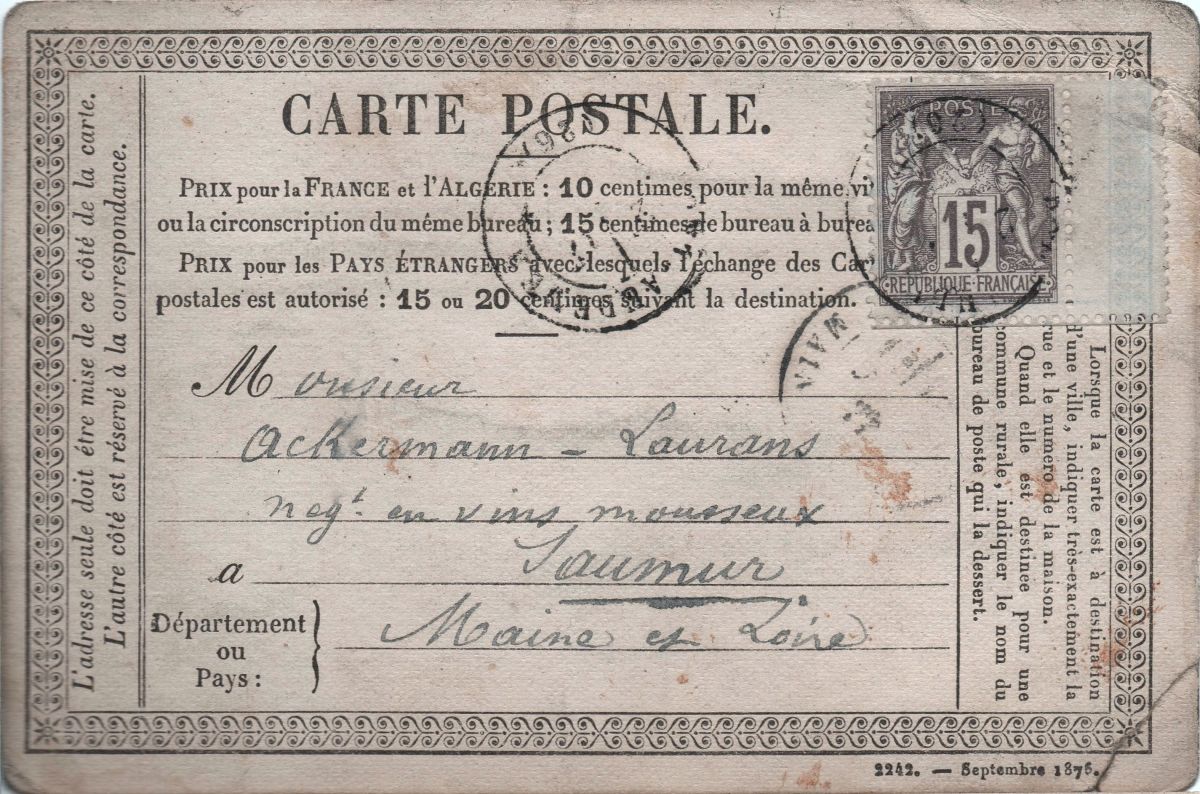 CARTE POSTALE.
PRIX pour la FRANCE et l'ALGÉRIE : 10 centimes pour la même vi
ou la circonscription du même bureau ; 15 centimes de bureau à burea
PRIX pour les PAYS ÉTRANGERS avec lesquels l'échange des Car
postales est autorisé : 15 ou 20 centimes suivant la destination.
POST
15
RÉPUBLIQUE FRANÇAISE
(26)
(26)
Monsieur
Ackermann - Laurans
negt. en vins mousseux
a Saumur
Département
ou
Pays :
Maine et Loire
L'adresse seule doit être mise de ce côté de la carte.
L'autre côté est réservé à la correspondance.
Lorsque la carte est à destination
d'une ville, indiquer très-exactement la
rue et le numéro de la maison.
Quand elle est destinée pour une
commune rurale, indiquer le nom du
bureau de poste qui la dessert.
2242. — Septembre 1876.